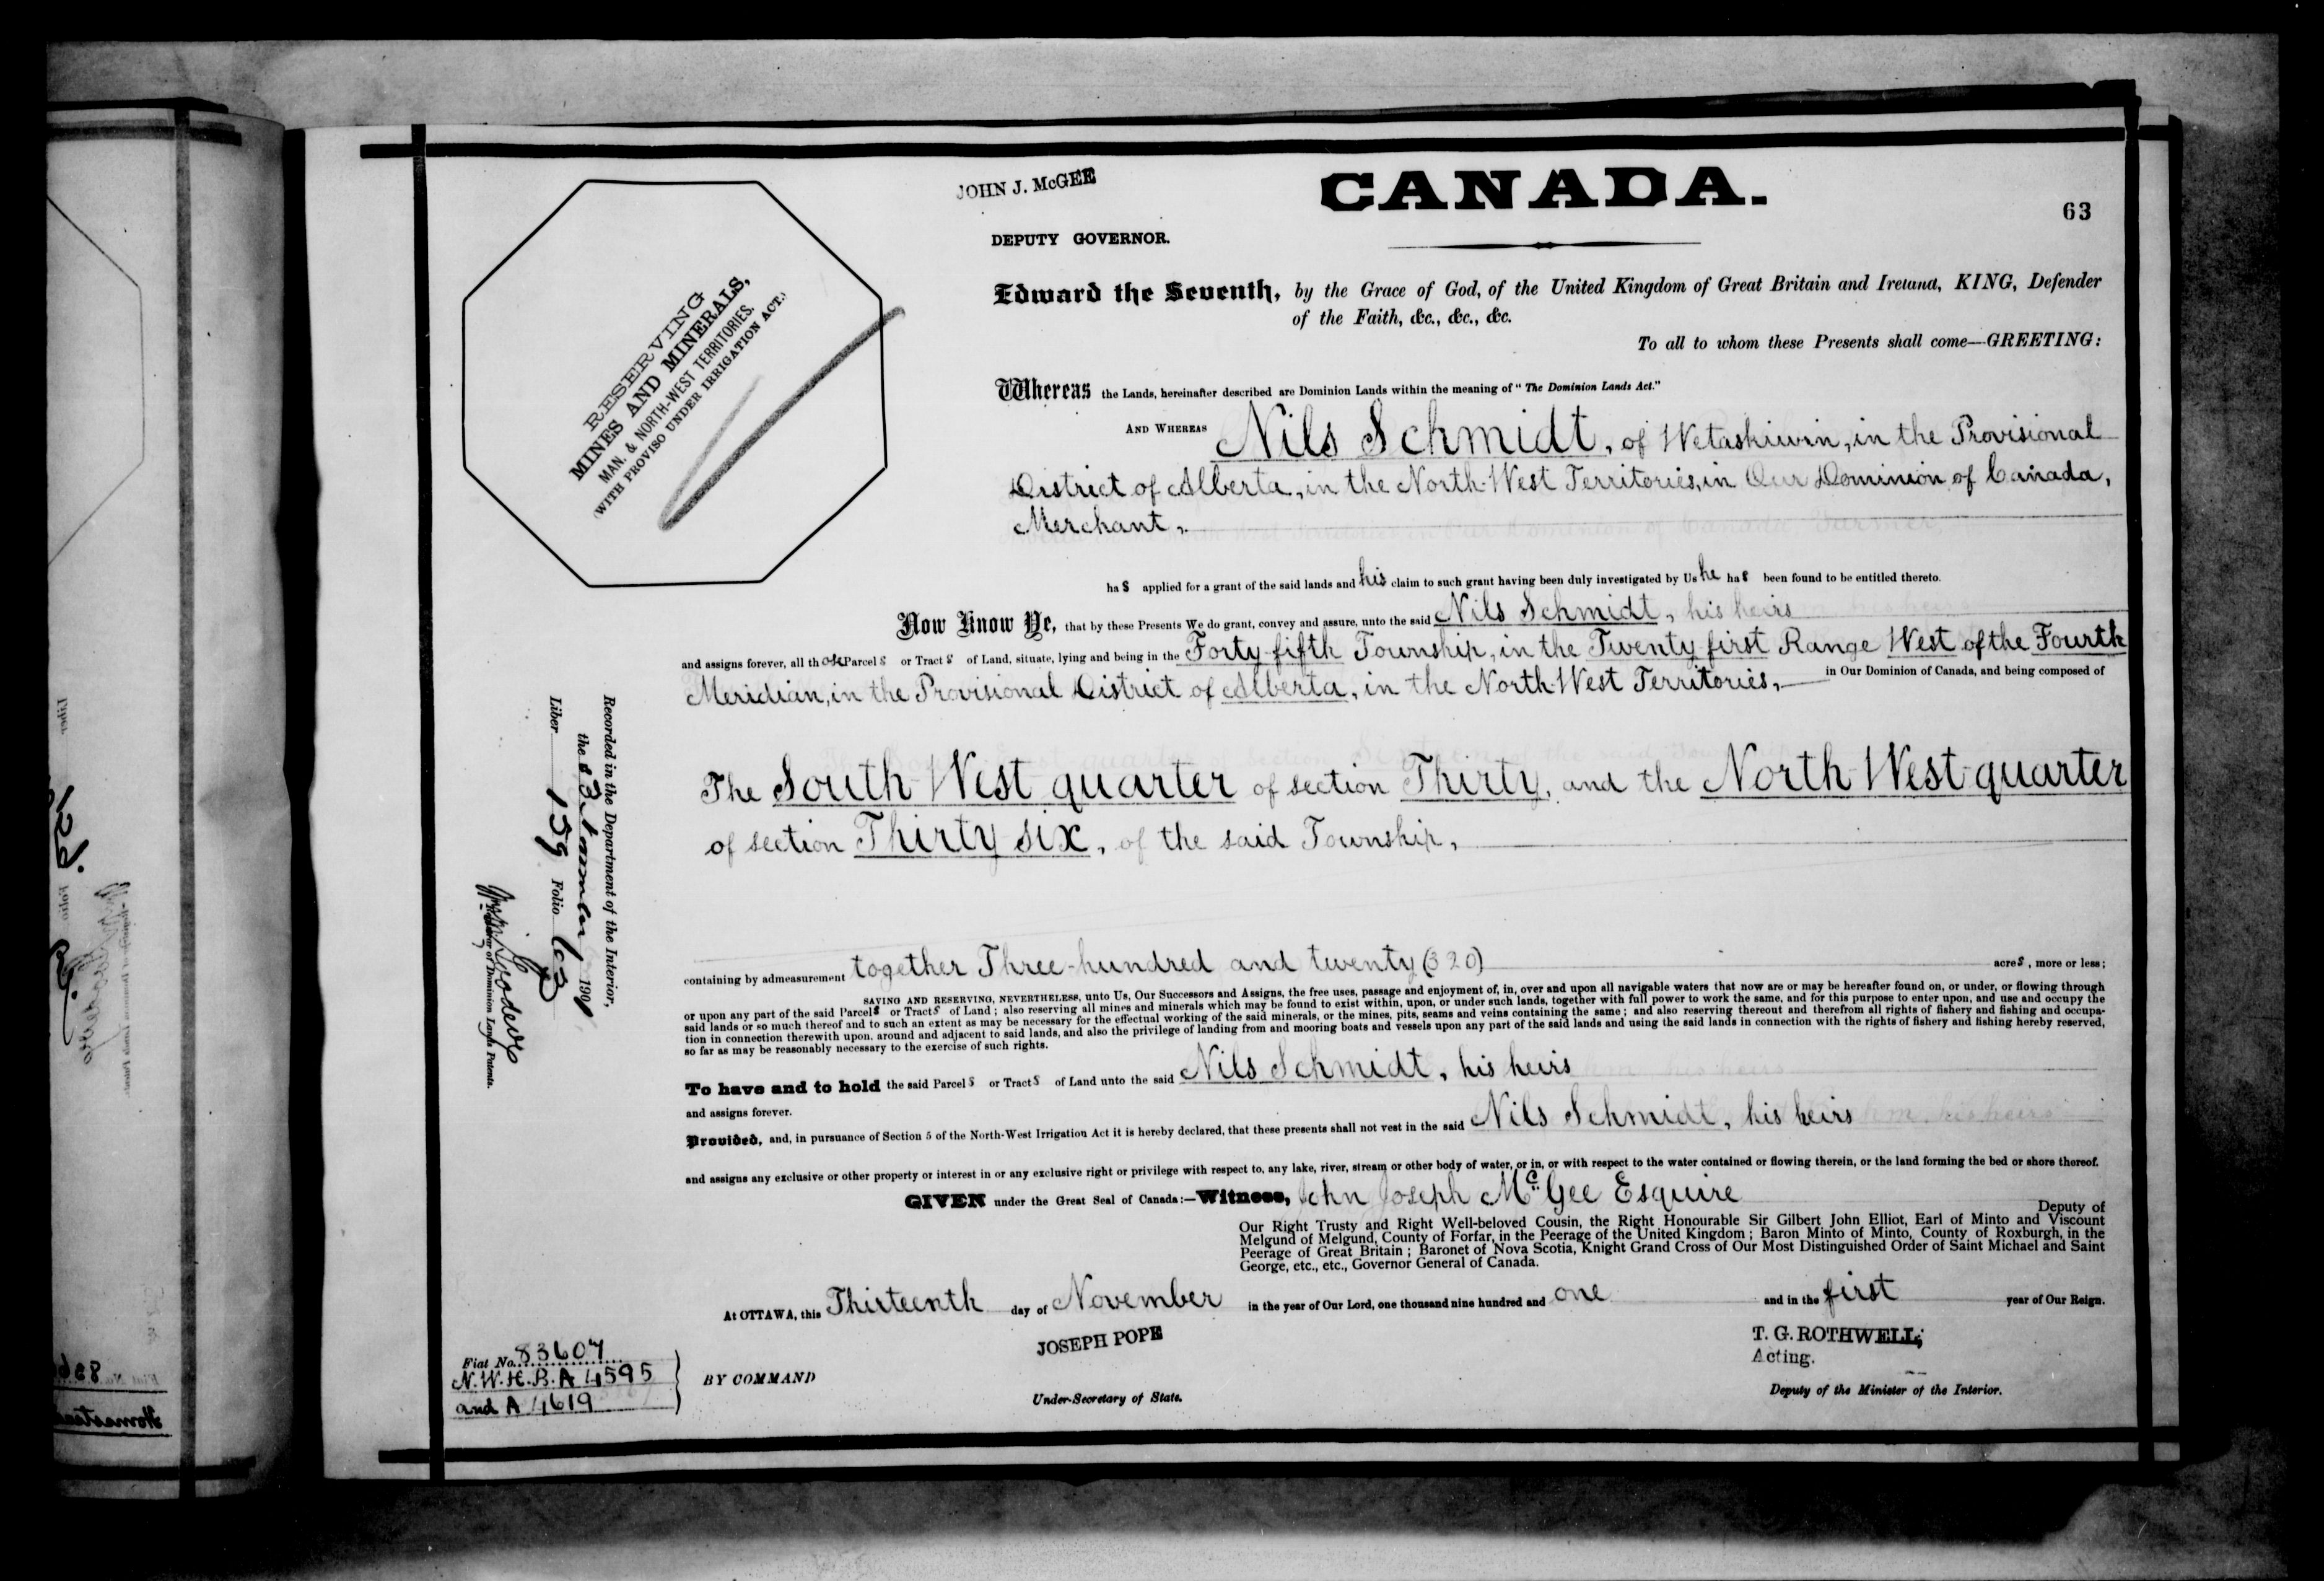 JOHN J. McGEE
DEPUTY GOVERNOR.
CANADA.
63
RESERVING
MINES AND MINERALS,
MAN. & NORTH-WEST TERRITORIES.
(WITH PROVISO UNDER IRRIGATION ACT.)
Edward the Seventh, by the Grace of God, of the United Kingdom of Great Britain and Ireland, KING, Defender
of the Faith, &c., &c., &c.
To all to whom these Presents shall come—GREETING:
Whereas the Lands, hereinafter described are Dominion Lands within the meaning of "The Dominion Lands Act."
AND WHEREAS Nils Schmidt, of Wetaskiwin, in the Provisional
District of Alberta, in the North-West Territories, in Our Dominion of Canada,
Merchant,
has applied for a grant of the said lands and his claim to such grant having been duly investigated by Us he has been found to be entitled thereto.
Now Know Ye, that by these Presents We do grant, convey and assure, unto the said Nils Schmidt, his heirs
and assigns forever, all those Parcels or Tracts of Land, situate, lying and being in the Forty-fifth Township, in the Twenty-first Range West of the Fourth
Meridian, in the Provisional District of Alberta, in the North-West Territories, in Our Dominion of Canada, and being composed of
The South-West quarter of section Thirty, and the North-West-quarter
of section Thirty six, of the said Township,
containing by admeasurement together Three-hundred and twenty (320) acres, more or less;
SAVING AND RESERVING, NEVERTHELESS, unto Us, Our Successors and Assigns, the free uses, passage and enjoyment of, in, over and upon all navigable waters that now are or may be hereafter found on, or under, or flowing through
or upon any part of the said Parcels or Tracts of Land; also reserving all mines and minerals which may be found to exist within, upon, or under such lands, together with full power to work the same, and for this purpose to enter upon, and use and occupy the
said lands or so much thereof and to such an extent as may be necessary for the effectual working of the said minerals, or the mines, pits, seams and veins containing the same; and also reserving thereout and therefrom all rights of fishery and fishing and occupa-
tion in connection therewith upon, around and adjacent to said lands, and also the privilege of landing from and mooring boats and vessels upon any part of the said lands and using the said lands in connection with the rights of fishery and fishing hereby reserved,
so far as may be reasonably necessary to the exercise of such rights.
To have and to hold the said Parcels or Tracts of Land unto the said Nils Schmidt, his heirs
and assigns forever.
Provided, and, in pursuance of Section 5 of the North-West Irrigation Act it is hereby declared, that these presents shall not vest in the said Nils Schmidt, his heirs
and assigns any exclusive or other property or interest in or any exclusive right or privilege with respect to, any lake, river, stream or other body of water, or in, or with respect to the water contained or flowing therein, or the land forming the bed or shore thereof.
GIVEN under the Great Seal of Canada:—Witness, John Joseph McGee Esquire
Deputy of
Our Right Trusty and Right Well-beloved Cousin, the Right Honourable Sir Gilbert John Elliot, Earl of Minto and Viscount
Melgund of Melgund, County of Forfar, in the Peerage of the United Kingdom; Baron Minto of Minto, County of Roxburgh, in the
Peerage of Great Britain; Baronet of Nova Scotia, Knight Grand Cross of Our Most Distinguished Order of Saint Michael and Saint
George, etc., etc., Governor General of Canada.
At OTTAWA, this Thirteenth day of November in the year of Our Lord, one thousand nine hundred and one and in the first year of Our Reign.
JOSEPH POPE
Under-Secretary of State.
T. G. ROTHWELL,
Acting.
Deputy of the Minister of the Interior.
BY COMMAND
Fiat No. 83607
N.W.H.B.A 4595
and A 4619
Recorded in the Department of the Interior,
the 190
Liber 159 Folio 63
Registrar of Dominion Lands Patents.